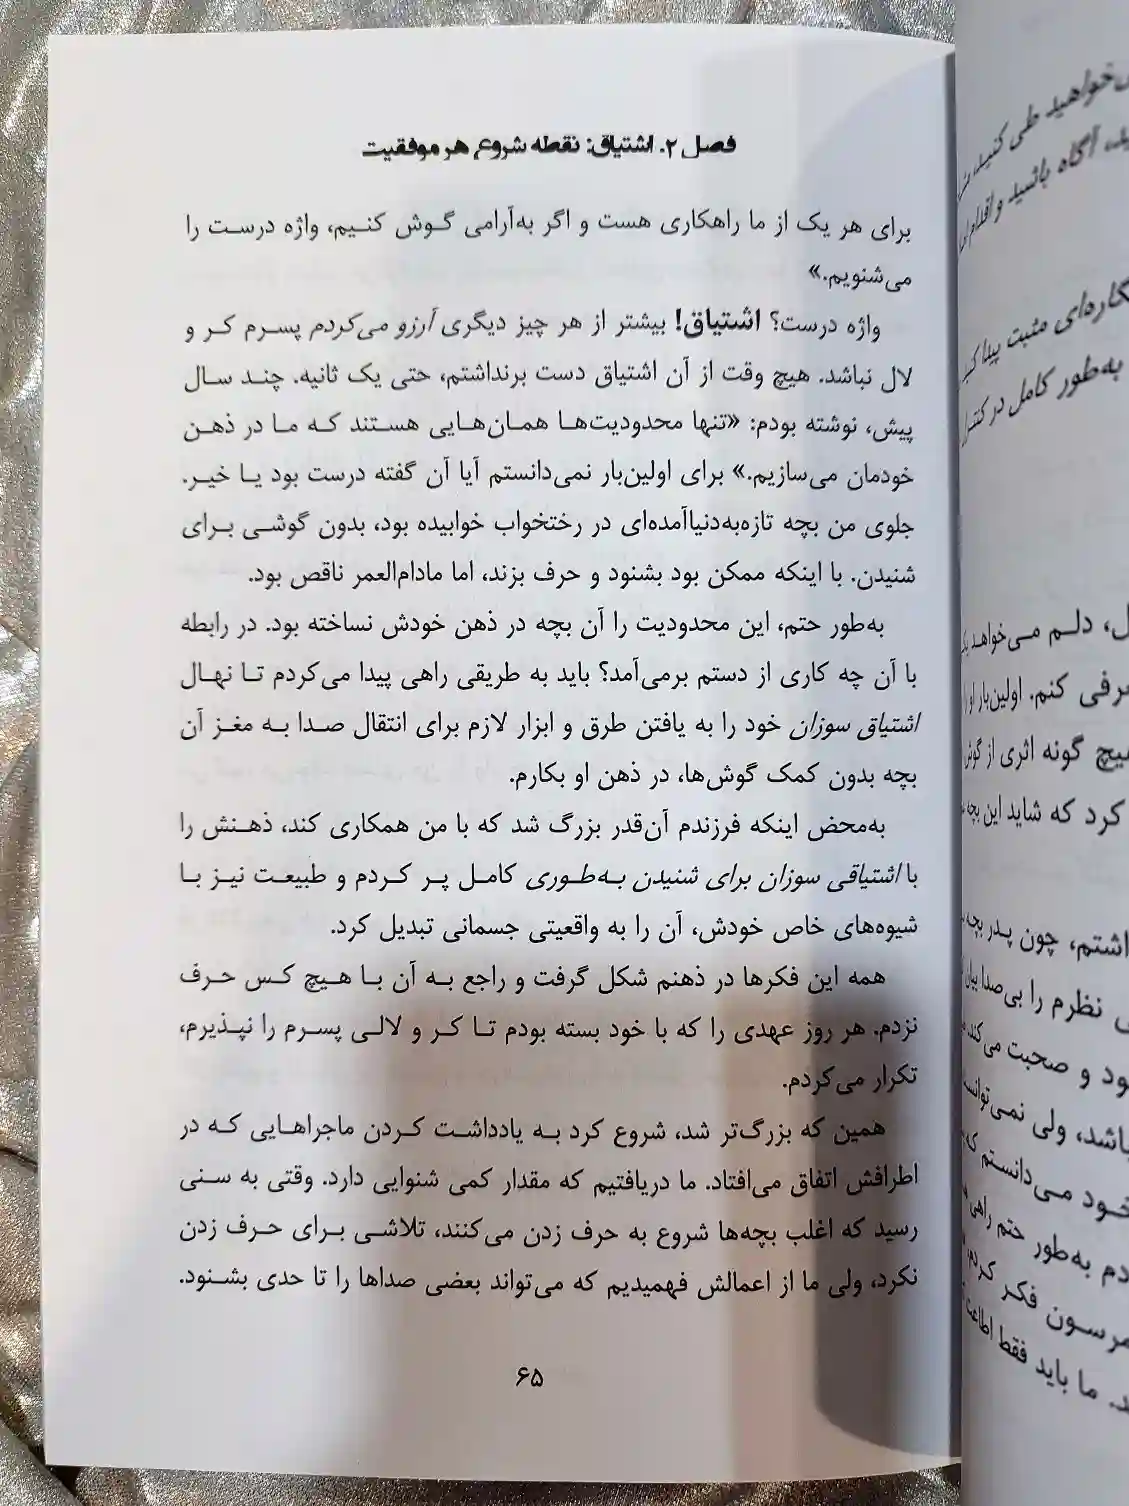 فصل ۲. اشتیاق: نقطه شروع هر موفقیت
برای هر یک از ما راهکاری هست و اگر به‌آرامی گوش کنیم، واژه درست را
می‌شنویم.»
واژه درست؟ اشتیاق! بیشتر از هر چیز دیگری آرزو می‌کردم پسرم کر و
لال نباشد. هیچ وقت از آن اشتیاق دست برنداشتم، حتی یک ثانیه. چند سال
پیش، نوشته بودم: «تنها محدودیت‌ها همان‌هایی هستند که ما در ذهن
خودمان می‌سازیم.» برای اولین‌بار نمی‌دانستم آیا آن گفته درست بود یا خیر.
جلوی من بچه تازه‌به‌دنیاآمده‌ای در رختخواب خوابیده بود، بدون گوشی برای
شنیدن. با اینکه ممکن بود بشنود و حرف بزند، اما مادام‌العمر ناقص بود.
به‌طور حتم، این محدودیت را آن بچه در ذهن خودش نساخته بود. در رابطه
با آن چه کاری از دستم برمی‌آمد؟ باید به طریقی راهی پیدا می‌کردم تا نهال
اشتیاق سوزان خود را به یافتن طرق و ابزار لازم برای انتقال صدا به مغز آن
بچه بدون کمک گوش‌ها، در ذهن او بکارم.
به‌محض اینکه فرزندم آن‌قدر بزرگ شد که با من همکاری کند، ذهنش را
با اشتیاقی سوزان برای شنیدن به‌طوری کامل پر کردم و طبیعت نیز با
شیوه‌های خاص خودش، آن را به واقعیتی جسمانی تبدیل کرد.
همه این فکرها در ذهنم شکل گرفت و راجع به آن با هیچ کس حرف
نزدم. هر روز عهدی را که با خود بسته بودم تا کر و لالی پسرم را نپذیرم،
تکرار می‌کردم.
همین که بزرگ‌تر شد، شروع کرد به یادداشت کردن ماجراهایی که در
اطرافش اتفاق می‌افتاد. ما دریافتیم که مقدار کمی شنوایی دارد. وقتی به سنی
رسید که اغلب بچه‌ها شروع به حرف زدن می‌کنند، تلاشی برای حرف زدن
نکرد، ولی ما از اعمالش فهمیدیم که می‌تواند بعضی صداها را تا حدی بشنود.
۶۵
می‌خواهید طی کنید،
آگاه باشید و اقدام
مثبت پیدا
به‌طور کامل در کنترل
دلم می‌خواهد
کنم. اولین‌بار او را
هیچ گونه اثری از گوش
کرد که شاید این بچه
چون پدر بچه
نظرم را بی‌صدا بیان
و صحبت می‌کند
باشد، ولی نمی‌توانست
خود می‌دانستم که
به‌طور حتم راهی
فکر کردم
ما باید فقط اطاعت